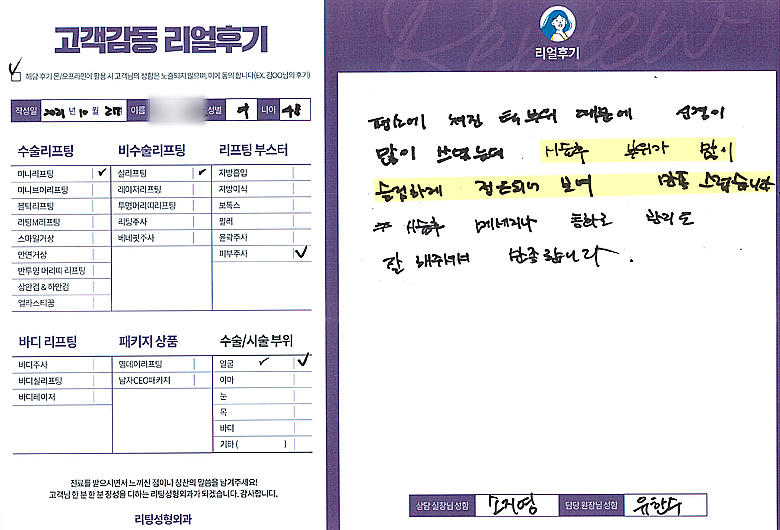 고객감동 리얼후기
해당 후기 온/오프라인에 활용 시 고객님의 성함은 노출되지 않으며, 이에 동의 합니다(EX. 김OO님의 후기)
작성일 2021 년 10 월 2 이름 성별 여 나이 48
수술리프팅
미니리프팅
미니브이리프팅
볼턱리프팅
리팅M리프팅
스마일거상
안면거상
반투명 머리띠 리프팅
상안검 & 하안검
엘라스티꿈
비수술리프팅
실리프팅
레이저리프팅
투명머리띠리프팅
리팅주사
베네핏주사
리프팅 부스터
지방흡입
지방이식
보톡스
필러
윤곽주사
피부주사
바디 리프팅
바디주사
바디실리프팅
바디레이저
패키지 상품
원데이리프팅
남자CEO패키지
수술/시술 부위
얼굴
이마
눈
목
바디
기타 ( )
진료를 받으시면서 느끼신 점이나 칭찬의 말씀을 남겨주세요!
고객님 한 분 한 분 정성을 다하는 리팅성형외과가 되겠습니다. 감사합니다.
리팅성형외과
Review
리얼후기
평소에 쳐진 턱부위 때문에 신경이
많이 쓰였는데 시술후 부위가 많이
슬림하게 정돈되어 보여 만족 스럽습니다
또 시술후 메세지나 통화로 관리도
잘 해주셔서 만족합니다.
상담 실장님 성함 오지영 담당 원장님 성함 유한수